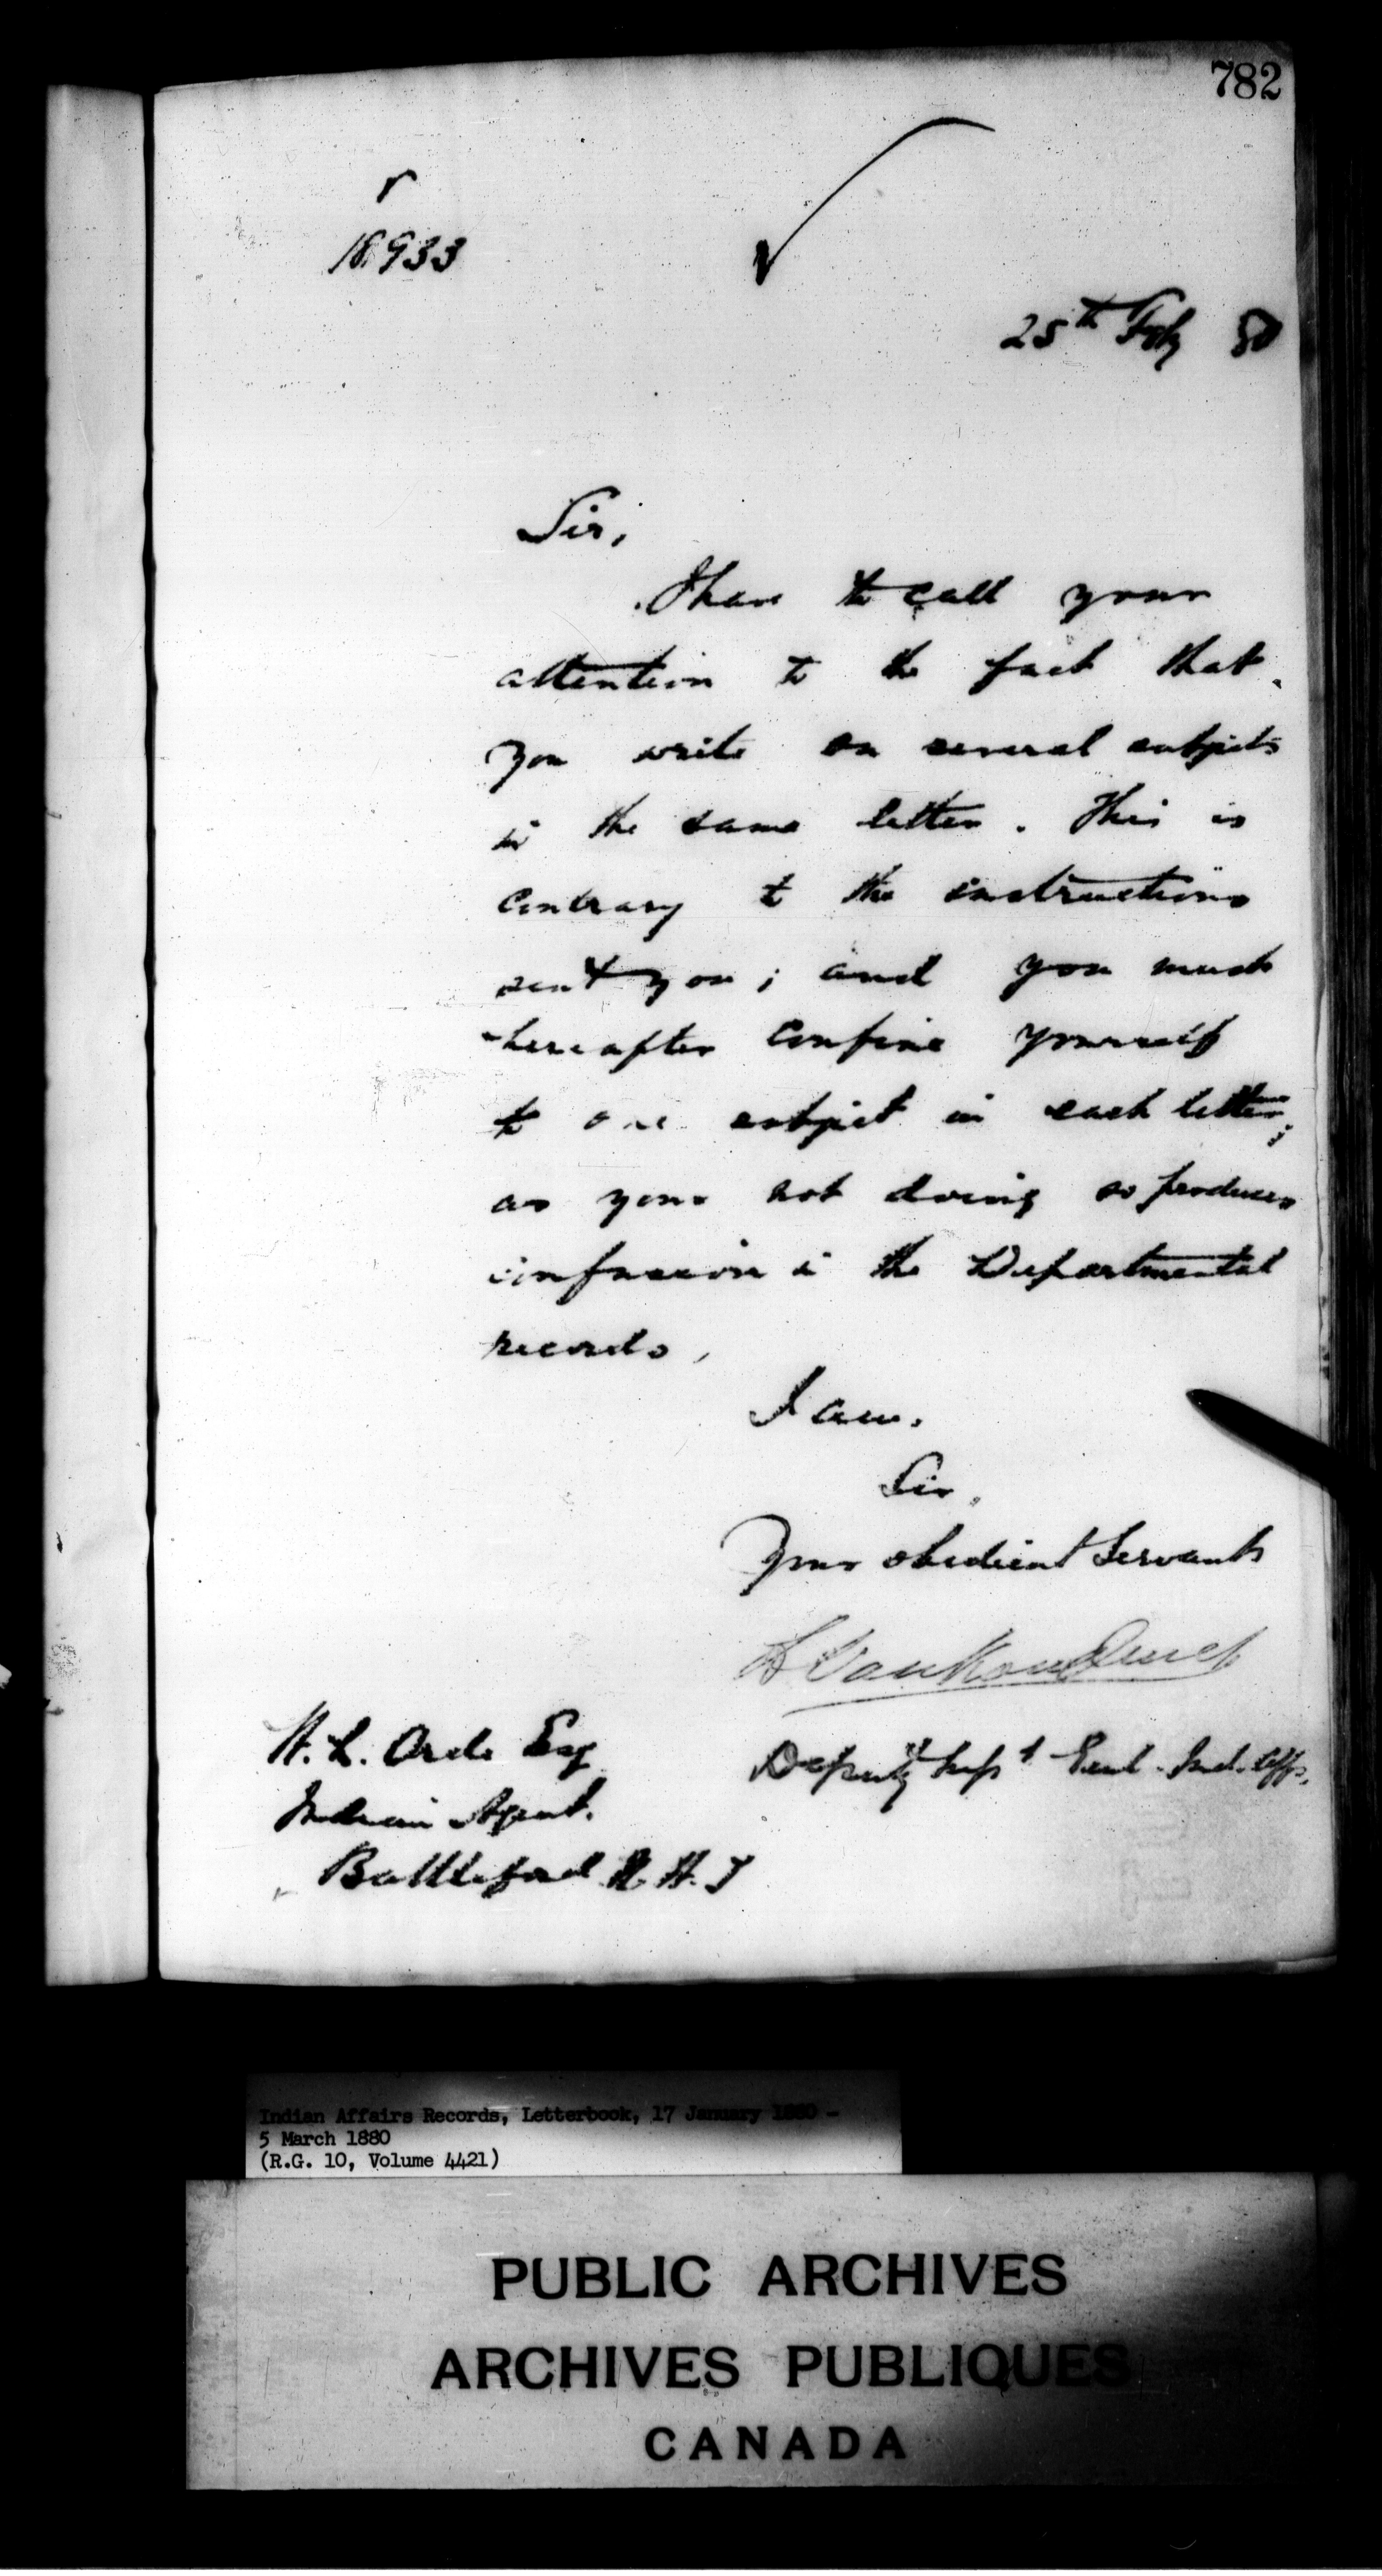 782
18933
25th Feby 80
Sir,
I have to call your
attention to the fact that
you write on several subjects
in the same letter. This is
contrary to the instructions
sent you; and you must
hereafter confine yourself
to one subject in each letter;
as your not doing so produces
confusion in the Departmental
records,
I am.
Sir,
Your obedient Servant
L VanKoughnet
Deputy Supt Genl. Ind. Affs.
W. L. Orde Esq
Indian Agent.
Battleford N. W. T
Indian Affairs Records, Letterbook, 17 January 1880 -
5 March 1880
(R.G. 10, Volume 4421)
PUBLIC ARCHIVES
ARCHIVES PUBLIQUES
CANADA